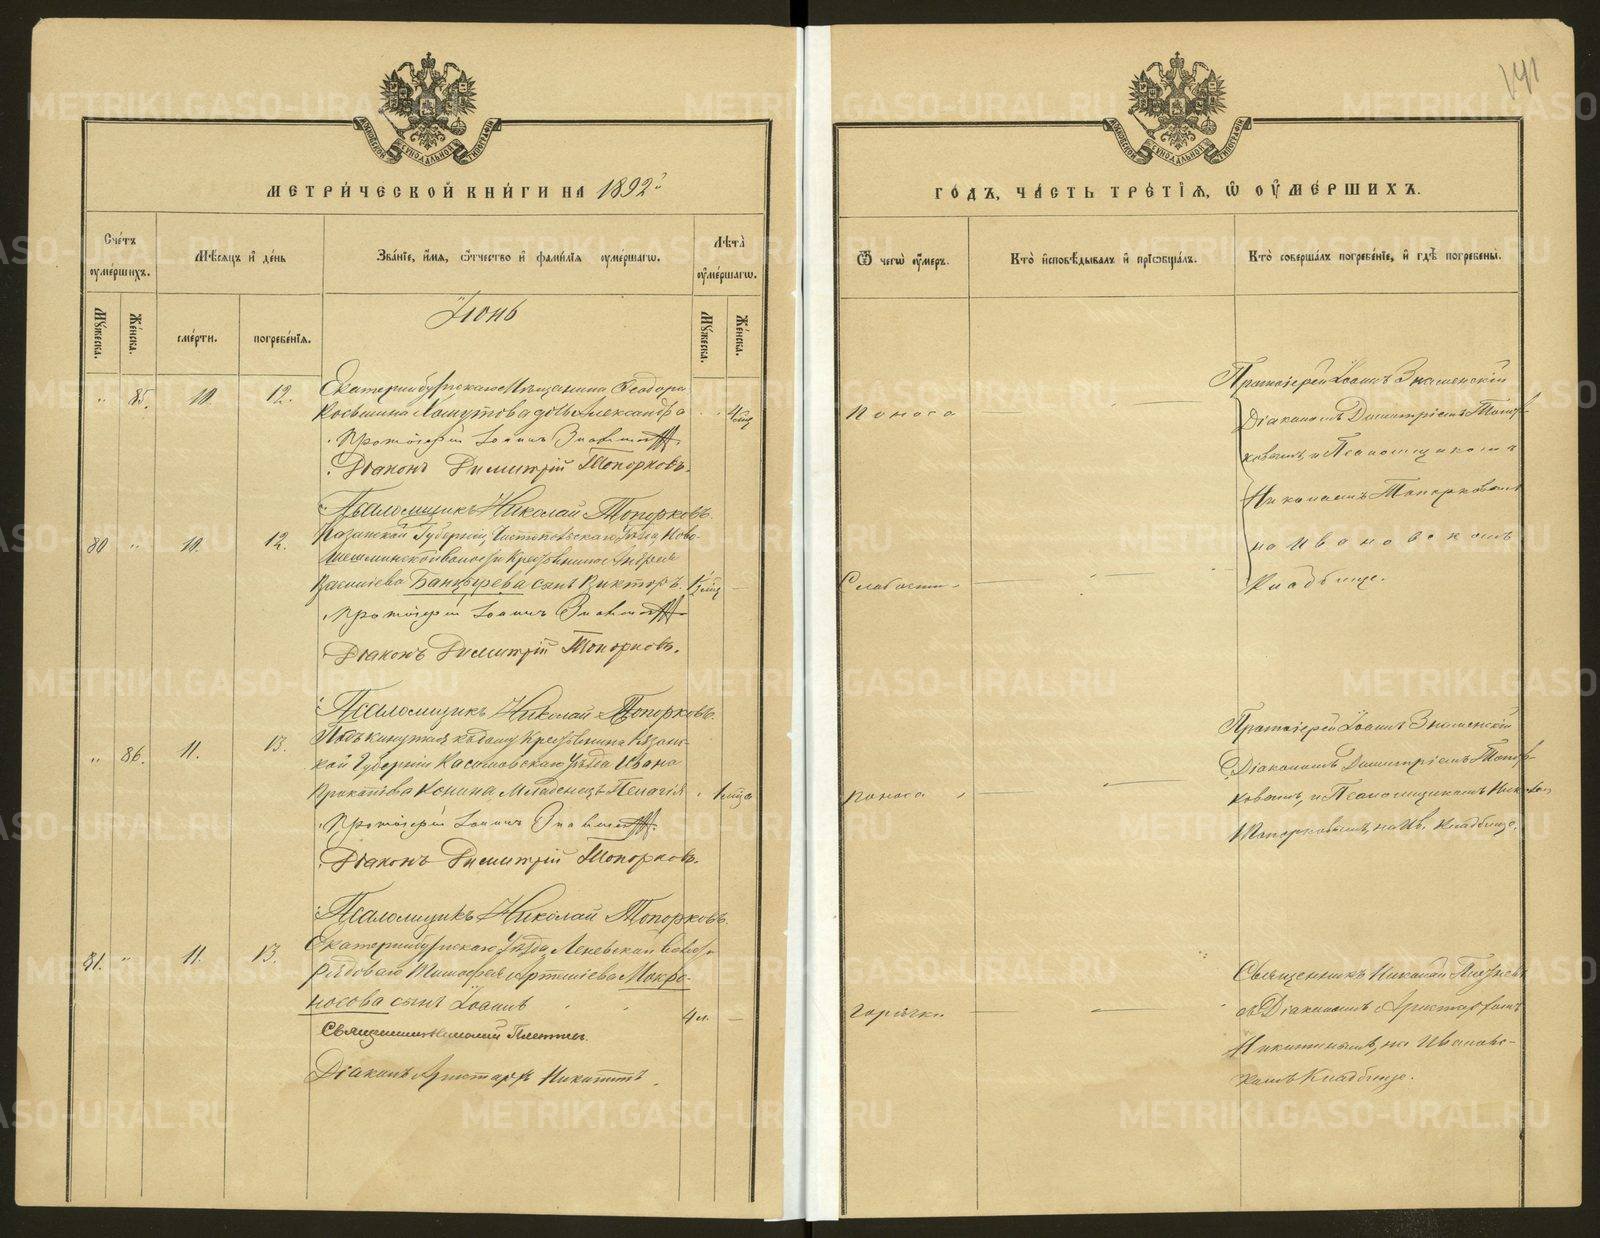 141
МЕТРИ́ЧЕСКОЙ КНИ́ГИ НА 1892й
Сче́тъ оуме́ршихъ.
Мужеска.
Же́нска.
Мѣ́сяцъ и де́нь
сме́рти.
погребе́нія.
Зва́ніе, и́мя, ѻ҆́тчество и фами́лія оуме́ршагѡ.
Лѣта̀ оуме́ршагѡ.
Мужеска.
Же́нска.
Іюнь
" 85. 10. 12. Екатеринбургскаго Мѣщанина Ѳеодора
Косьмина Хомутова дочь Александра 4 мѣс
Протоіерей Іоаннъ Знаменскій
Діаконъ Димитрій Топорковъ.
Псаломщикъ Николай Топорковъ.
80 " 10. 12. Казанской Губерніи, Чистопольскаго Уѣзда, Ново-
Шешминской волости Крестьянина Андрея
Василіева сынъ Викторъ.
Протоіерей Іоаннъ Знаменскій
Діаконъ Димитрій Топорковъ.
Псаломщикъ Николай Топорковъ.
" 86. 11. 13. Подкинутая къ дому Крестьянина Рязан-
кой Губерніи Касимовскаго Уѣзда Ивана
Конина Младенецъ Пелагія 1 мѣс
Протоіерей Іоаннъ Знаменскій
Діаконъ Димитрій Топорковъ.
Псаломщикъ Николай Топорковъ.
81. " 11. 13. Екатеринбургскаго Уѣзда
рядоваго Тимофея Артеміева Мокро-
носова сынъ Іоаннъ 4 л.
Священникъ Николай
Діаконъ Аристархъ Никитинъ.
ГО́ДЪ, ЧА́СТЬ ТРЕ́ТІЯ, Ѡ ОУМЕ́РШИХЪ.
Ѿ чегѡ̀ оу́меръ.
Кто̀ и҆сповѣ́дывалъ и҆ пріѡбща́лъ.
Кто̀ соверша́лъ погребе́ніе, и҆ гдѣ̀ погребены̀.
Поноса
Протоіерей Іоаннъ Знаменскій
съ Діакономъ Димитріемъ Топор-
ковымъ, и Псаломщикомъ
Николаемъ Топорковымъ
на Ивановскомъ
Кладбище.
Слабости
Поноса
Протоіерей Іоаннъ Знаменскій
съ Діакономъ Димитріемъ Топор-
ковымъ, и Псаломщикомъ Николаем
Топорковымъ, на Ив. Кладбище.
Горячки
Священникъ Николай
съ Діакономъ Аристархомъ
Никитинымъ, на Иванов-
комъ Кладбище.
METRIKI.GASO-URAL.RU